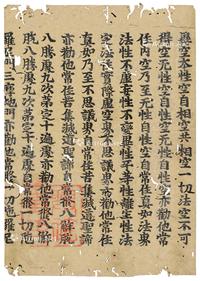 異空本性空自相空共相空一切法空不可
得空无性空自性空无性自性空亦勸他常
住內空乃至无性自性空自常住真如法界
法性不虛妄性不變異性平等性離生性法
定法住實際虛空界不思議界亦勸他常住
真如乃至不思議界自常住苦集滅道聖諦
亦勸他常住苦集滅道聖諦自常修八解脫
八勝處九次第定十遍處亦勸他常修八解
脫八勝處九次第定十遍處自常修一切陁
羅尼門三摩地門亦勸他常修一切陁羅尼